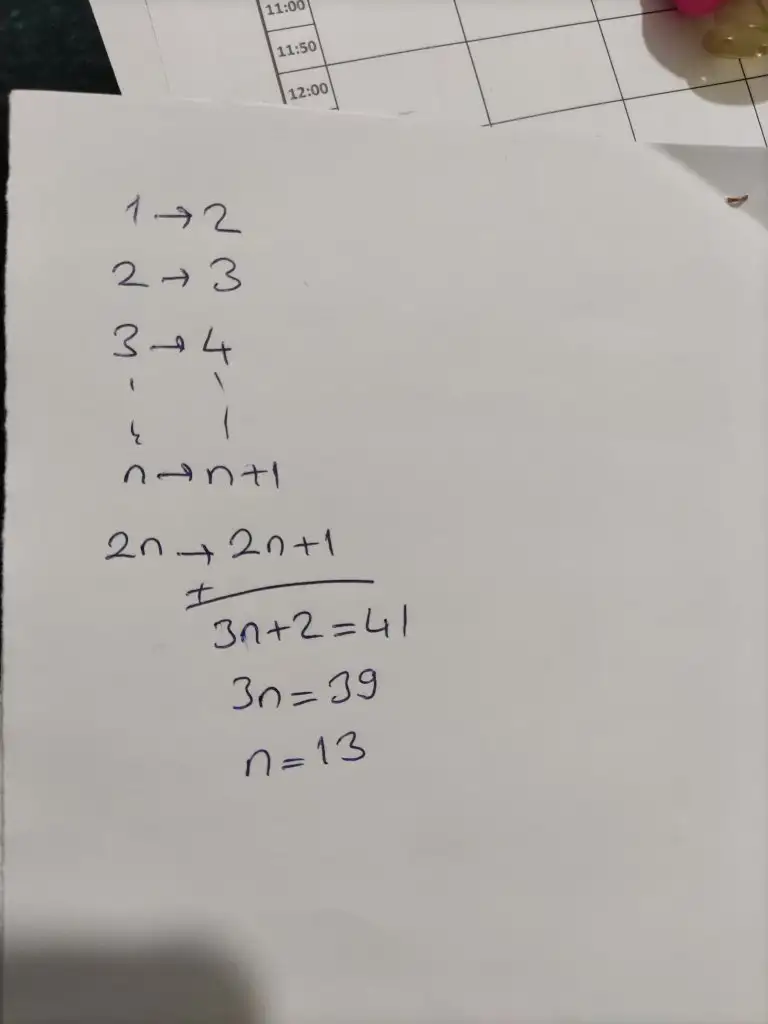 11:00
11:50
12:00
1 → 2
2 → 3
3 → 4
n → n+1
2n → 2n+1
+
3n+2=41
3n=39
n=13